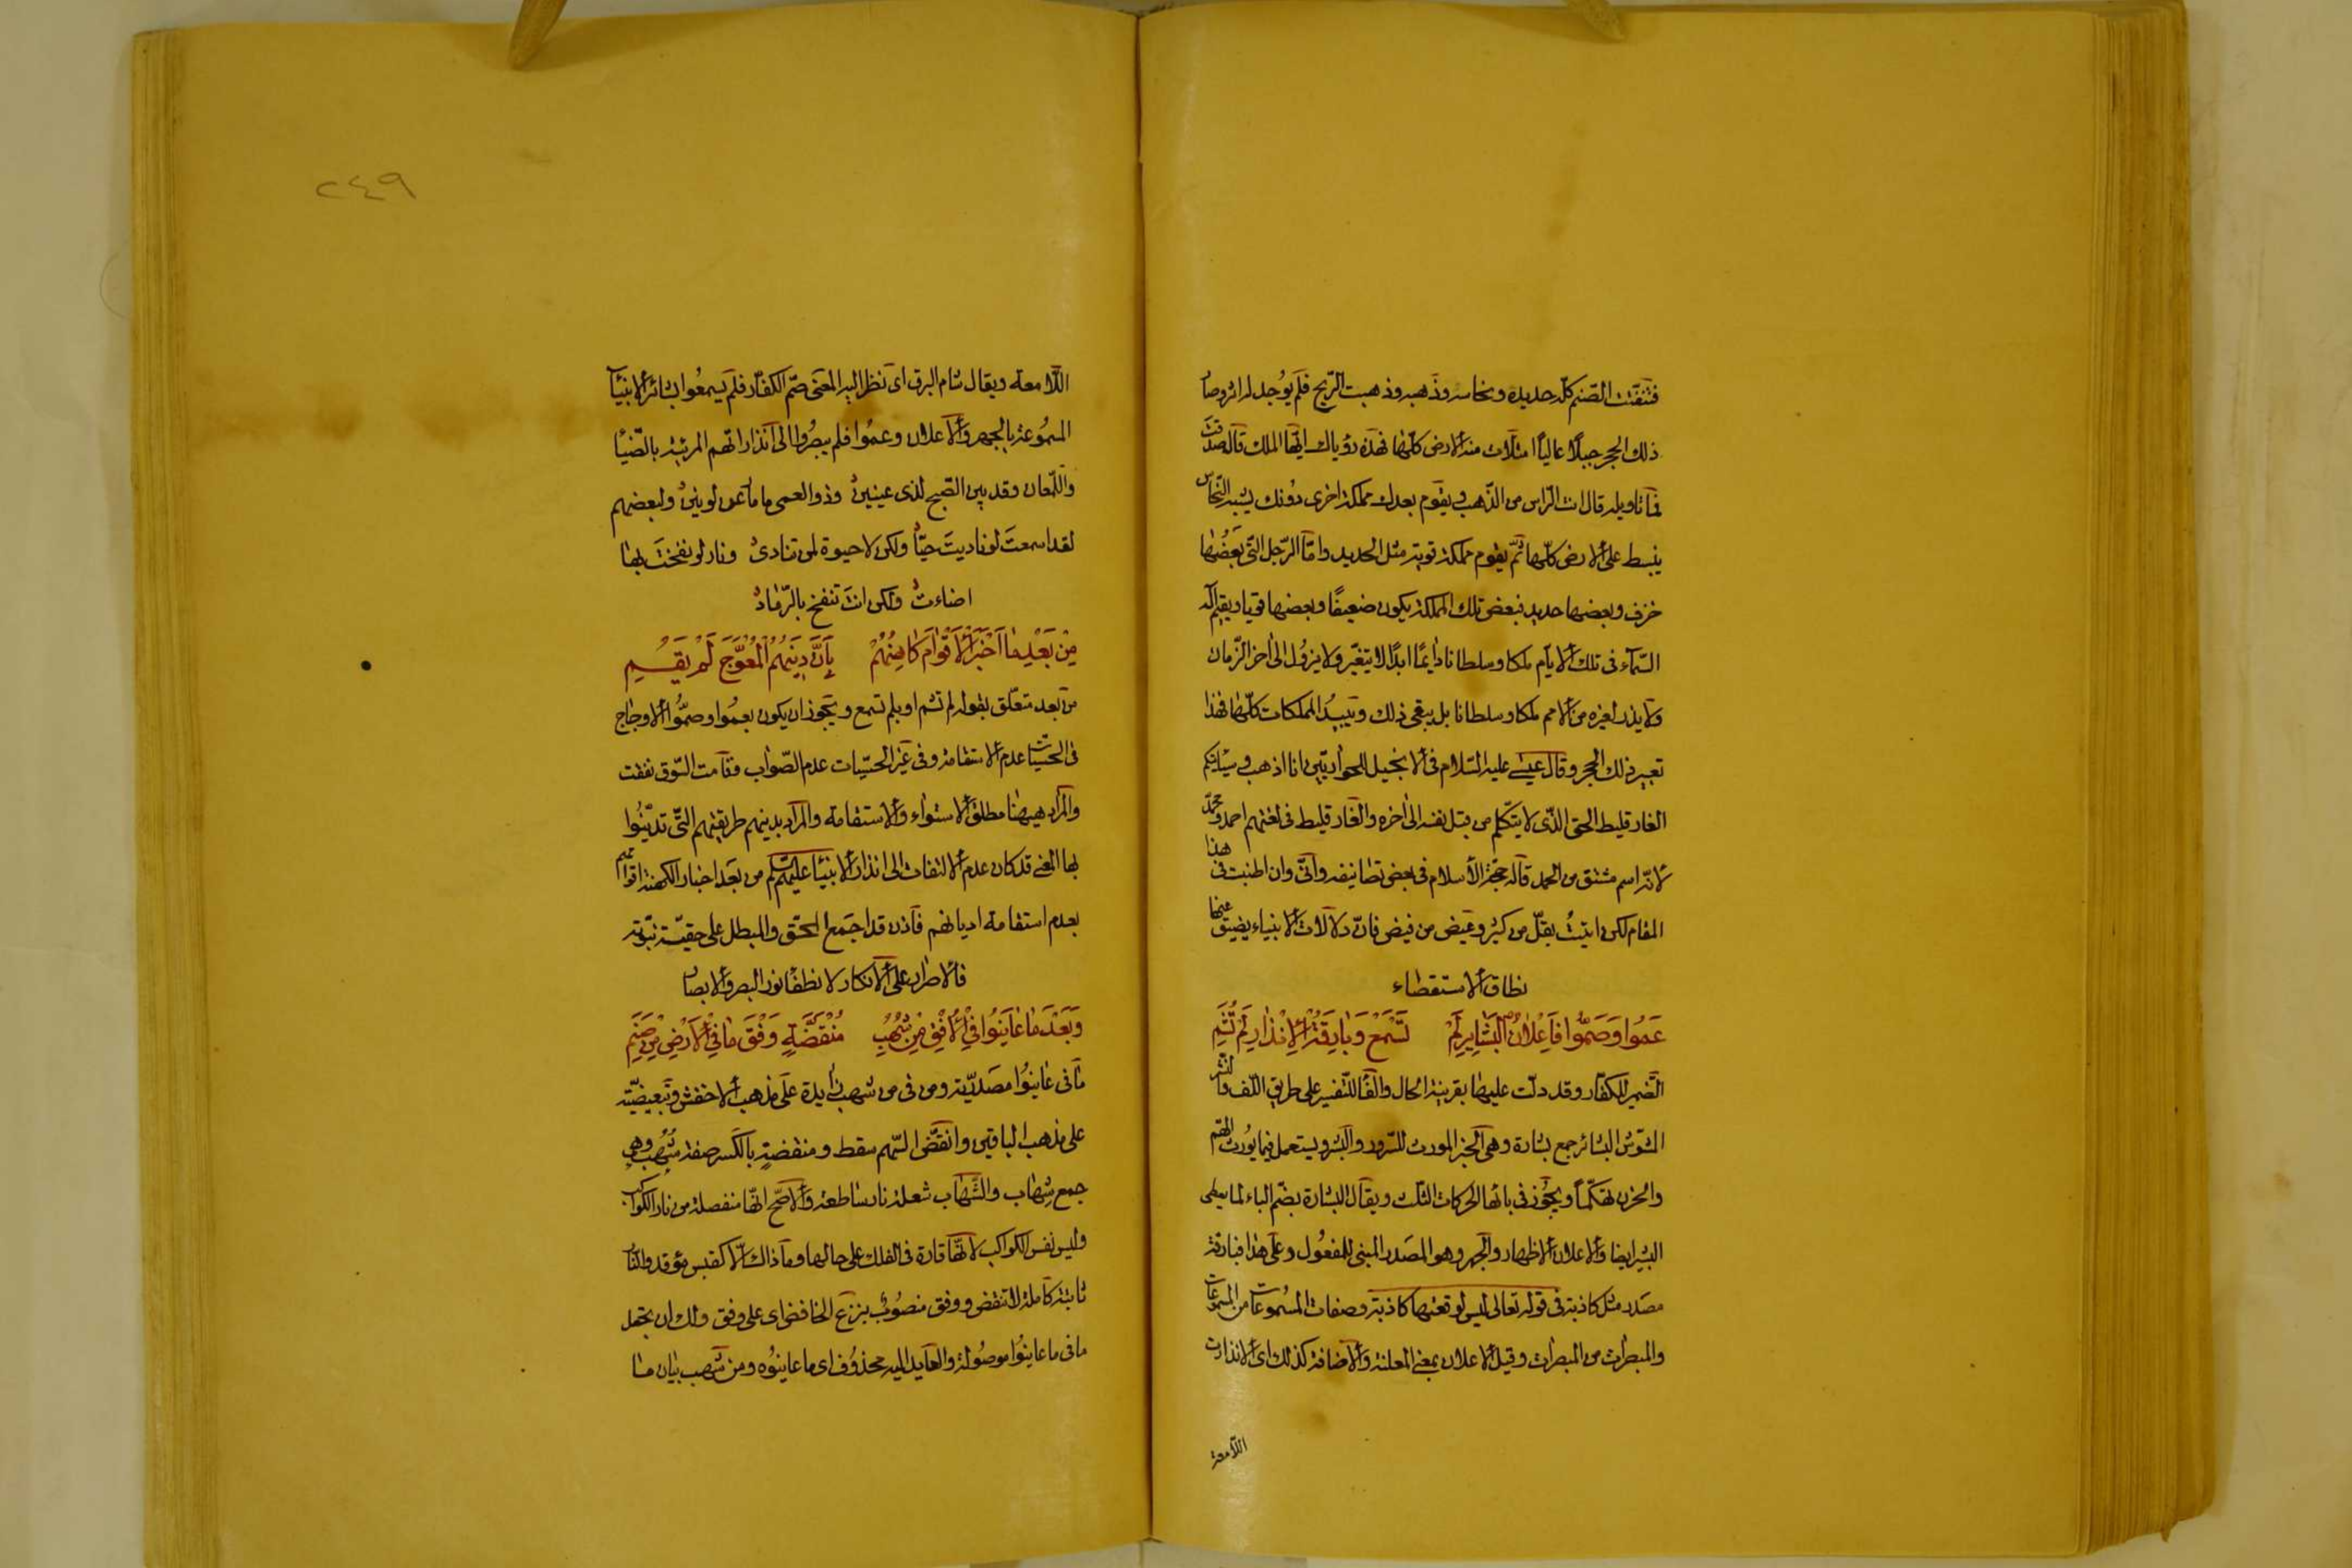 فتفتّت الصّنم كلّه حديده ونحاسه وذهبه وذهبت الرّيح فلم يوجد له اثر وصار
ذلك الحجر جبلًا عاليًا امتلات منه الارض كلّها فهذه رؤياك ايّها الملك قال صدقت
فما تاويله قال انت الرّاس من الذّهب ويقوم بعدك مملكة اخرى دونك يشبه النّحاس
ينبسط على الارض كلّها ثمّ يقوم مملكة قوية مثل الحديد وامّا الرّجل الّتى بعضها
خزف وبعضها حديد فبعض تلك المملكة يكون ضعيفًا وبعضها قويا ويقيم اله
السّمآء فى تلك الايام ملكا وسلطانا دايمًا ابدًا لا يتغيّر ولا يزول الى اخر الزّمان
ولا يذر لغيره من الامم ملكا وسلطانا بل يبقى ذلك ويبيد المملكات كلّها فهذا
تعبير ذلك الحجر وقال عيسى عليه السّلام فى الانجيل للحواريّين انا اذهب وسياتيكم
الفارقليط الحق الّذى لا يتكلّم من قبل نفسه الى اخره والفارقليط فى لغتهم احمد ومحمّد
لانّه اسم مشتق من الحمد قاله حجّة الاسلام فى بعض تصانيفه وانّى وان اطنبت فى هذا
المقام لكن اتيت بقلّ من كثر وغيض من فيض فانّ دلالات الانبياء يضيق عنها
نطاق الاستقصاء
عَمُوا وَصَمُّوا فَاِعْلَانُ الْبَشَايِرِ لَمْ تُسْمَعْ وَبَارِقَةُ الْاِنْذَارِ لَمْ تُشَمِ
الضّمير للكفّار وقد دلّت عليها بقرينة الحال والفآ للتّفسير على طريق اللّف والنّشر
المشوّش البشائر جمع بشارة وهى الخبر المورث للسّرور والبشر ويستعمل فيما يورث الهمّ
والحزن تهكّمًا ويجوز فى بائها الحركات الثلث ويقال البشارة بضمّ الباء لما يعطى
البشير ايضا والاعلان الاظهار والجهر وهو المصدر المبنى للمفعول وعلى هذا فبارقة
مصدر مثل كاذبة فى قوله تعالى ليس لوقعتها كاذبة وصفات المسموعات من المسموعات
والمبصرات من المبصرات وقيل الاعلان بمعنى المعلنة والاضافة كذلك اى الانذارات
اللّامعة
٢٤٩
اللّامعة ويقال شام البرق اى نظر اليه المعنى صمّ الكفّار فلم يسمعوا بشائر الانبيآ
المسموعة بالجهر والاعلان وعموا فلم يبصروا الى انذاراتهم المرئية بالضّيآ
واللّمعان وقد يبين الصّبح لذى عينين وذو العمى
لقد اسمعت لو ناديت حيًّا ولكن لا حيوة لمن تنادى ونار لو نفخت بها
اضاءت ولكن انت تنفخ بالرّماد
مِنْ بَعْدِ مَا اَخْبَرَ الْاَقْوَامَ كَاهِنُهُمْ بِاَنَّ دِينَهُمُ الْمُعْوَجَّ لَمْ يَقُمِ
من بعد متعلّق بقوله لم تشم او بلم تسمع ويجوز ان يكون بعموا وصمّوا الاوجاج
فى الحسّيّات عدم الاستقامة وفى غير الحسّيات عدم الصّواب وقامت السّوق نفقت
والمراد ههنا مطلق الاستواء والاستقامة والمراد بدينهم طريقتهم الّتى تديّنوا
بها المعنى قد كان عدم الالتفات الى انذار الانبيآ عليهم السّلم من بعد اخبار الكهنة اقوامهم
بعدم استقامة اديانهم فاذن قد اجمع المحقّ والمبطل على حقيّة نبوّته
فالاصرار على الانكار لا نطفآ نور البصر والابصار
وَبَعْدَ مَا عَايَنُوا فِى الْاُفُقِ مِنْ شُهُبٍ مُنْقَضَّةٍ وَفْقَ مَا فِى الْاَرْضِ مِنْ صَنَمِ
ما فى عاينوا مصدريّة ومن فى من شهب زايدة على مذهب الاخفش وتبعيضيّة
على مذهب الباقين وانقضّ السّهم سقط ومنقضّةٍ بالكسر صفة شهب وهى
جمع شهاب والشّهاب شعلة نار ساطعة والاصّح انّها منفصلة من نار الكواكب
وليس نفس الكواكب لانّها قارة فى الفلك على حالها وما ذاك الّا كقبس مؤقد والنّار
ثابتة كاملة لا تنقض ووفق منصوب بنزع الخافض اى على وفق ولك ان تجعل
ما فى ما عاينوا موصولة والعايد اليه محذوف اى ما عاينوه ومن شهب بيان ما